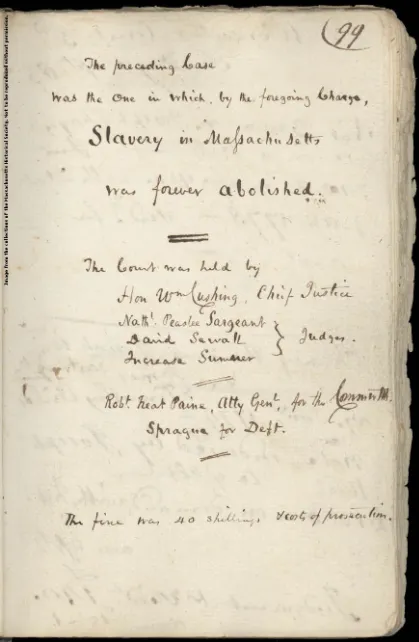 99
The preceding Case
was the One in which, by the foregoing Charge,
Slavery in Maſsachusetts
was forever abolished.
The Court was held by
Hon Wm Cushing, Chief Justice
Nathl. Peaslee Sargeant
David Sewall } Judges.
Increase Sumner
Robt Treat Paine, Atty Genl, for the Commonwth.
Sprague for Deft.
The fine was 40 shillings & costs of prosecution.
Image from the collections of the Massachusetts Historical Society. Not to be reproduced without permission.